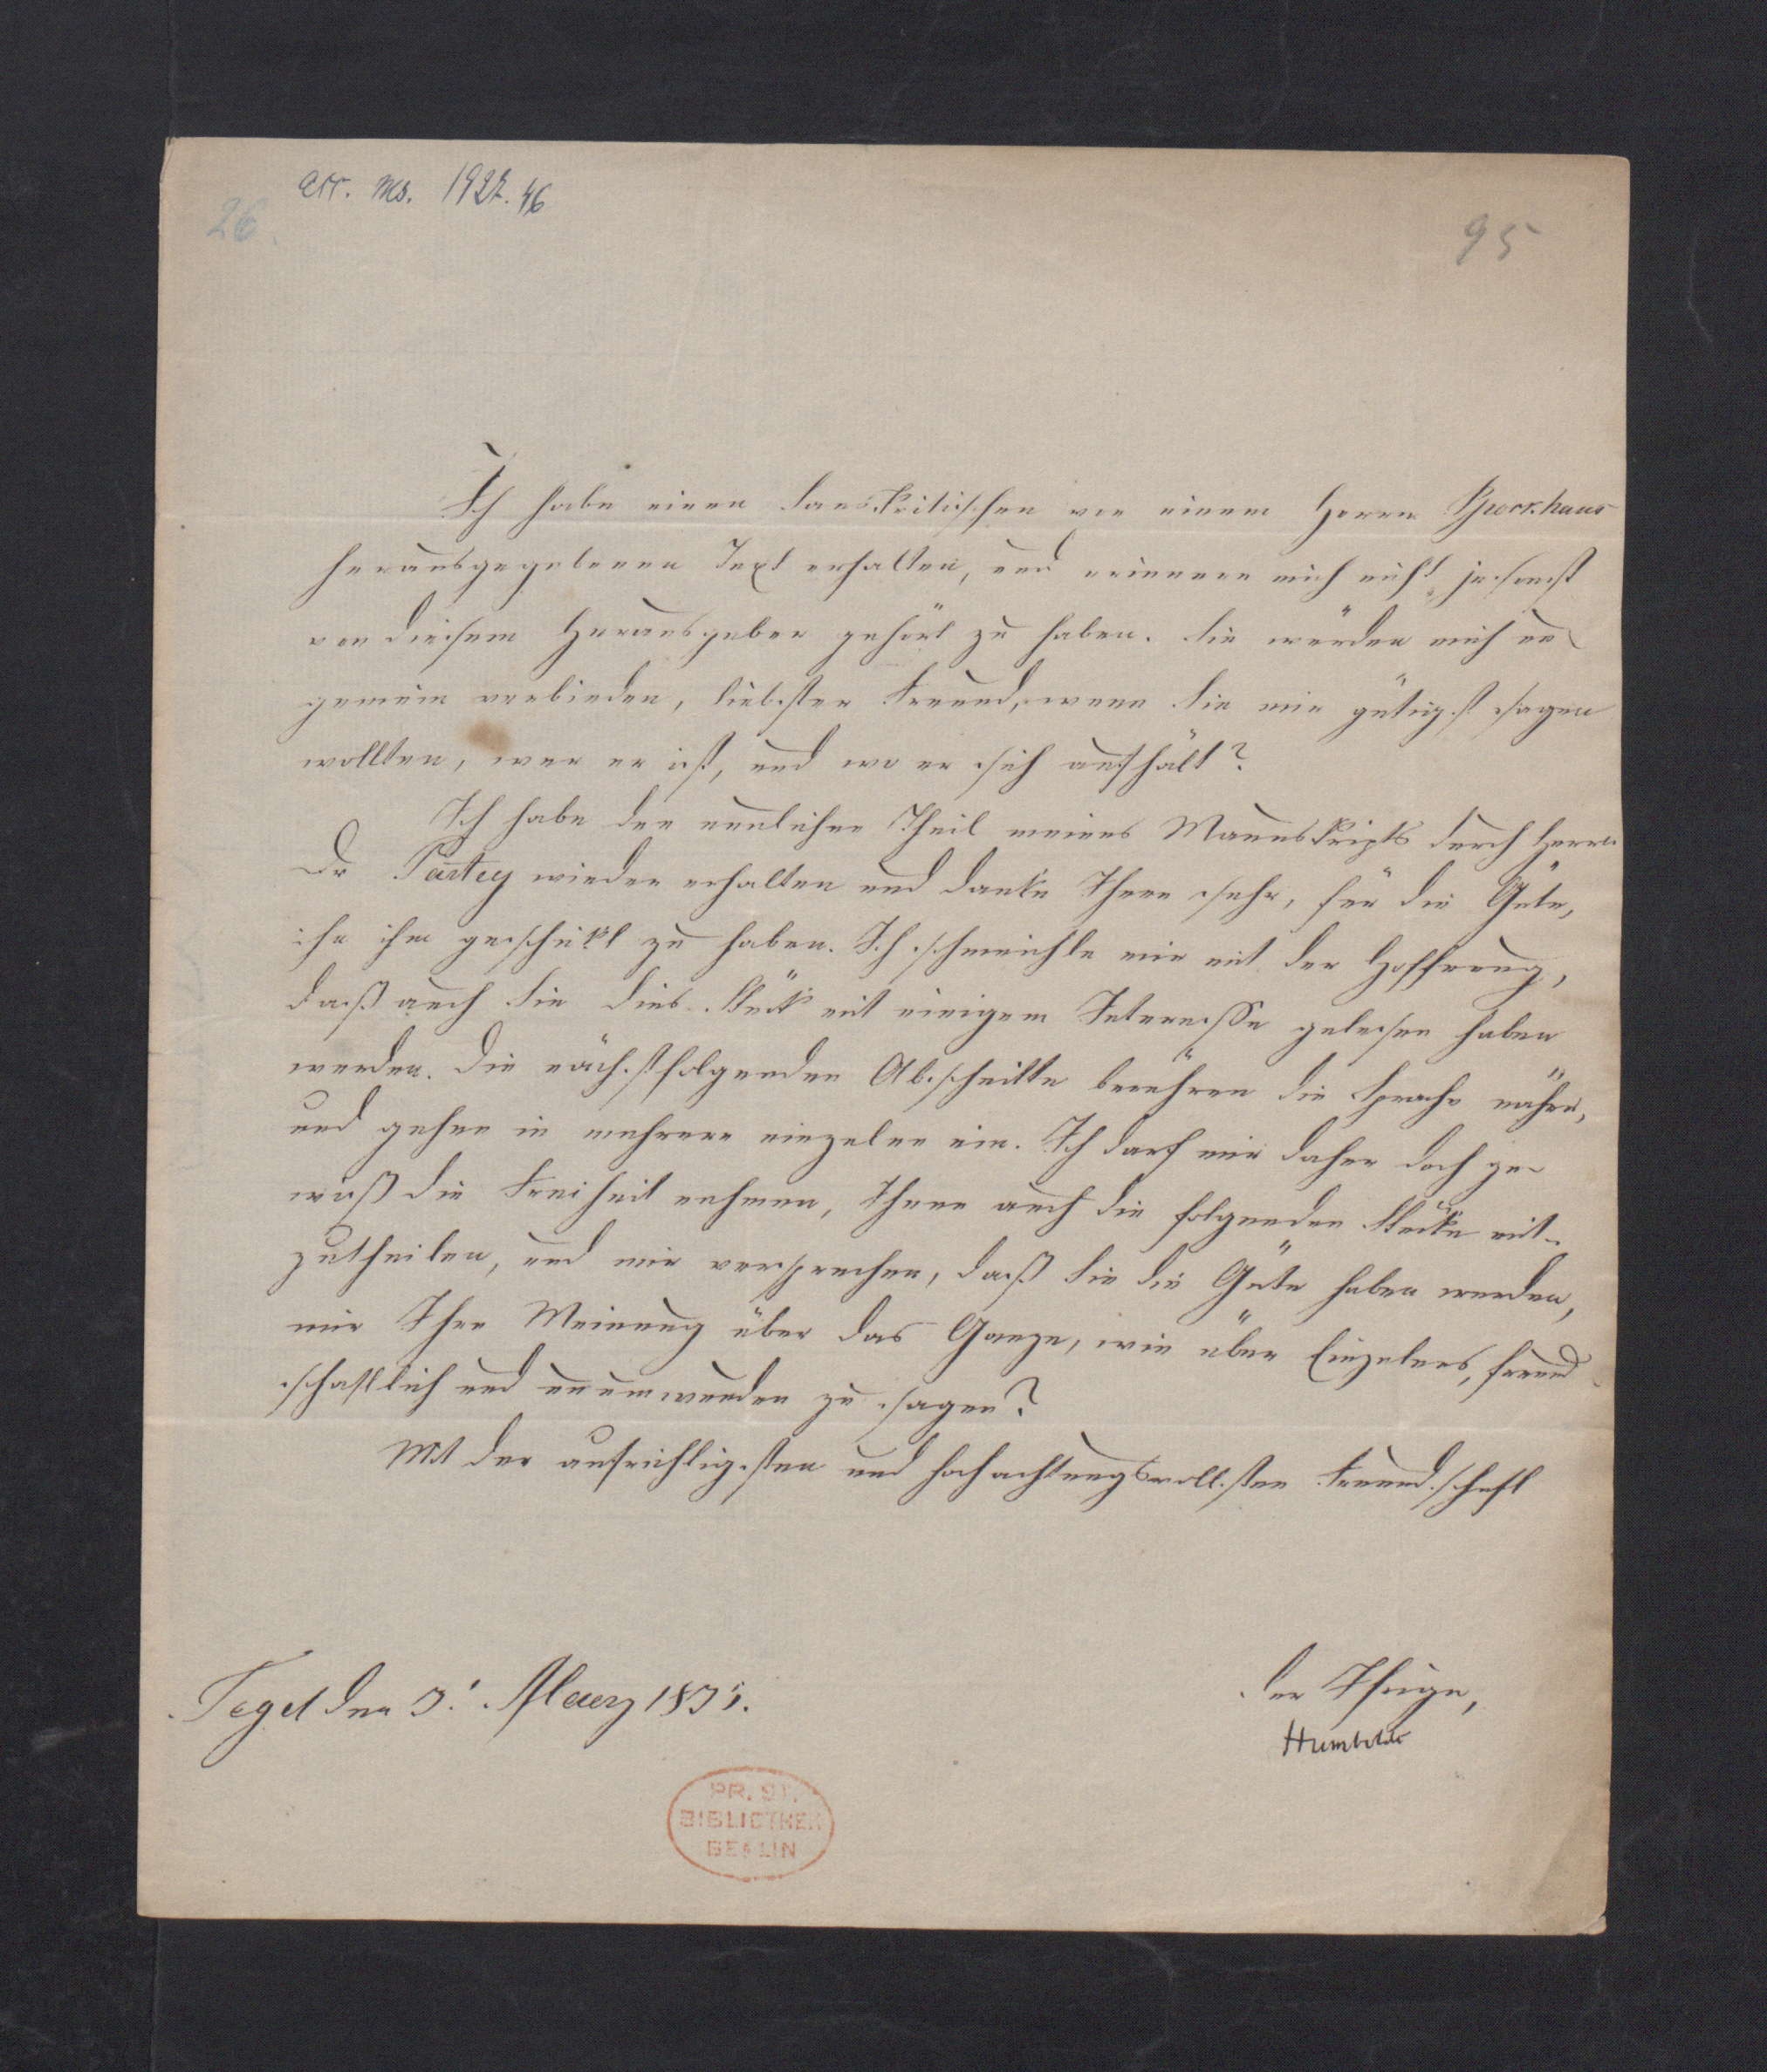 acc. ms. 1927. 46
26.
95
Ich habe einen Sanskritischen von einem Herrn Brockhaus
herausgegebenen Text erhalten, und erinnere mich nicht je sonst
von diesem Herausgeber gehört zu haben. Sie würden mich un
gemein verbinden, liebster Freund, wenn Sie mir gütigst sagen
wollten, wer er ist, und wo er sich aufhält?
Ich habe den neulichen Theil meines Manuskripts durch Herrn
Dr Partey wieder erhalten und danke Ihnen sehr, für die Güte,
ihn ihm geschikt zu haben. Ich schmeichle mir mit der Hoffnung,
daß auch Sie dies Stük mit einigem Interesse gelesen haben
werden. Die nächstfolgenden Abschnitte berühren die Sprache näher,
und gehen in mehrere einzelne ein. Ich darf mir daher doch ge
wiß die Freiheit nehmen, Ihnen auch die folgenden Stücke mit-
zutheilen, und mir versprechen, daß Sie die Güte haben werden,
mir Ihre Meinung über das Ganze, wie über Einzelnes, freund
schaftlich und unumwunden zu sagen?
Mit der aufrichtigsten und hochachtungsvollsten Freundschaft
der Ihrige,
Humboldt
Tegel den 3. Maerz 1835.
PR. ST.
BIBLIOTHEK
BERLIN